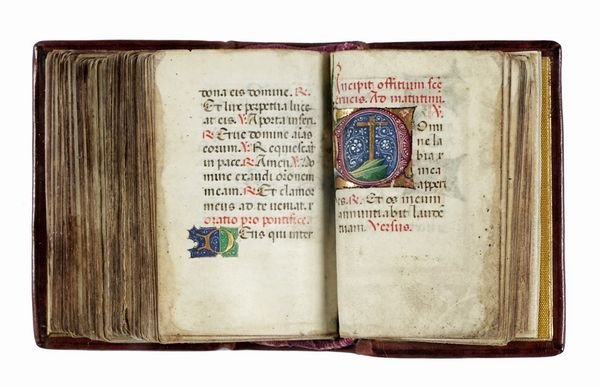 dona eis domine. R.
Et lux perpetua luce
at eis. V. A porta inferi.
R. Erue domine aias
eorum. V. Requiescat
in pace. R. Amen. V. Do
mine exaudi oronem
meam. R. Et clamor
meus ad te veniat.
oratio pro pontifice.
Deus qui inter
Incipit offitium scē
crucis. Ad matutinū.
V.
Domi
ne la
bia
mea
apperi
es. R. Et os meum
annuntiabit laude
tuam. Versus.